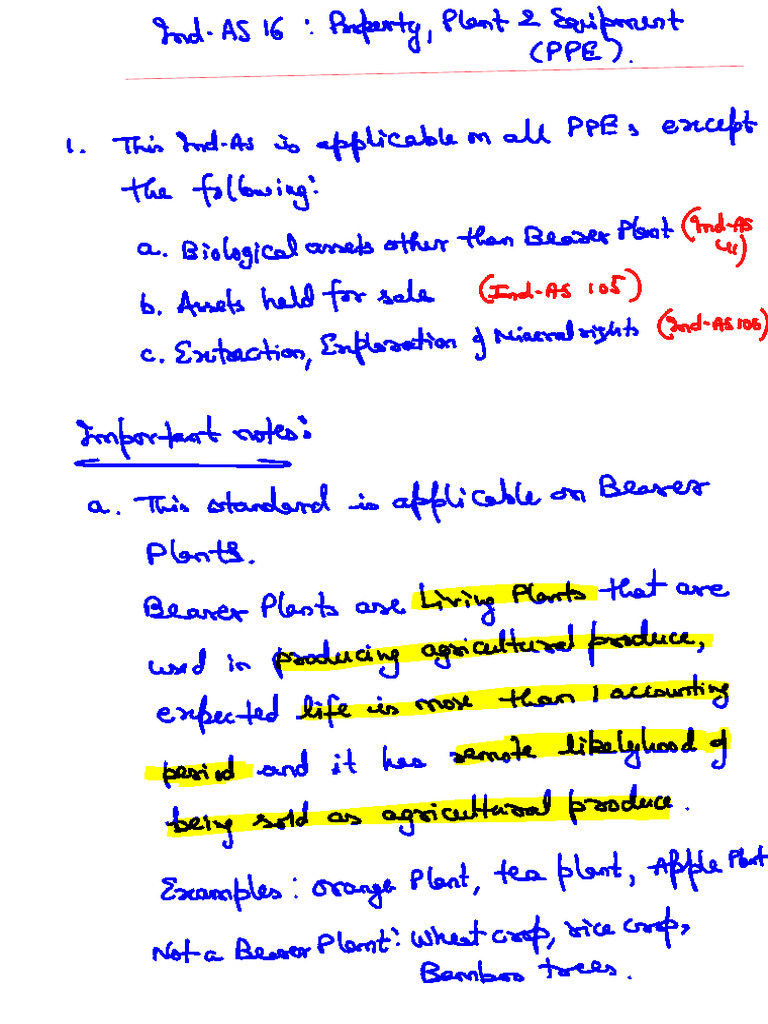 Ind-AS 16 : Property, Plant & Equipment
(PPE).
1. This Ind-As is applicable on all PPEs except
the following:
a. Biological assets other than Bearer Plant (Ind-AS 41)
b. Assets held for sale (Ind-AS 105)
c. Extraction, Exploration of Mineral rights (Ind-AS 106)
Important notes:
a. This standard is applicable on Bearer
Plants.
Bearer Plants are Living Plants that are
used in producing agricultural produce,
expected life is more than 1 accounting
period and it has remote likelyhood of
being sold as agricultural produce.
Examples: orange Plant, tea plant, Apple Plant
Not a Bearer Plant: Wheat crop, rice crop,
Bamboo trees.